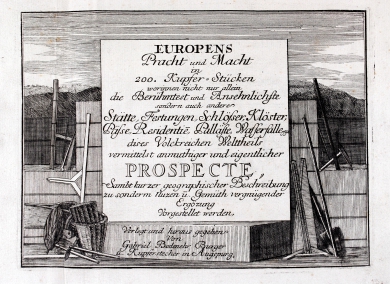 EUROPENS
Pracht und Macht
in
200. Kupfer=Stücken
worinnen nicht nur allein
die Berühmtest und Ansehnlichste
sondern auch andere
Stätte, Festungen, Schlösser, Klöster,
Pässe, Residentiē, Palläste, Wasserfälle
dises Volckreichen Welttheils
vermittelst anmuthiger und eigentlicher
PROSPECTE,
Sambt kurzer geographischer Beschreibung
zu sonderm Nuzen u. Gemüth vergnügender
Ergözung
Vorgestellet werden.
Verlegt und heraus gegeben
von
Gabriel Bodenehr Burger
u. Kupferstecher in Augspurg.